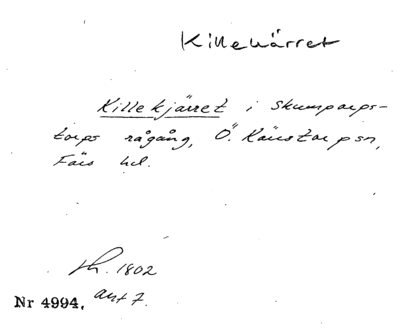 Killekärret
Killekjärret i Skumparps-
torps rågång, Ö. Kärstorp sn,
Färs hd.
1802
Nr 4994, art 7.